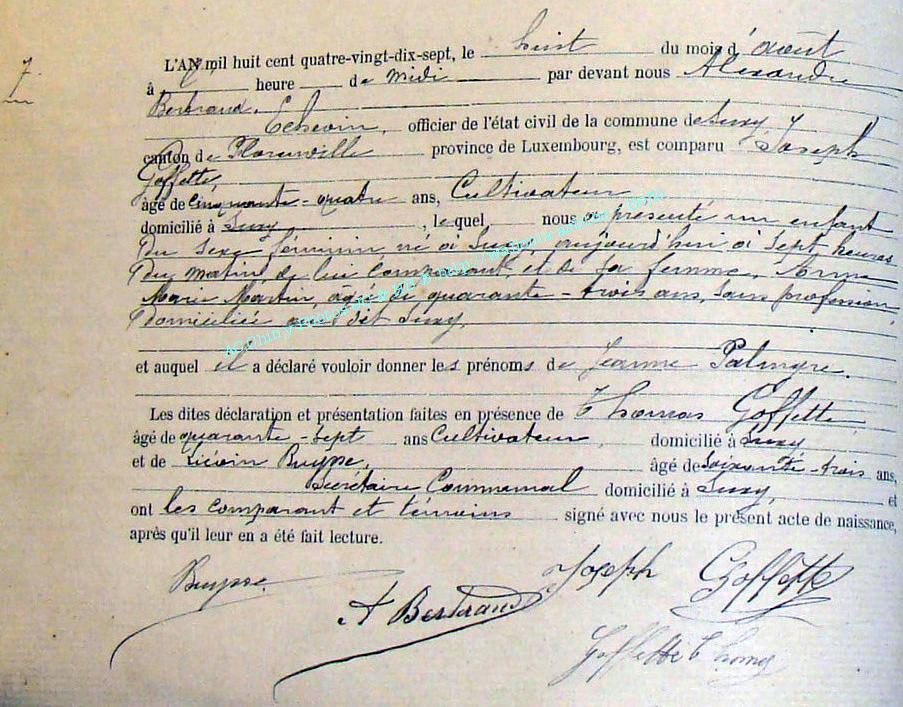 7
L'AN mil huit cent quatre-vingt-dix-sept, le huit du mois d' août
à heure de midi par devant nous Alexandre
Bertrand,
Echevin, officier de l'état civil de la commune de Suxy
canton de Florenville province de Luxembourg, est comparu Joseph
Goffette,
âgé de cinquante-quatre ans, Cultivateur
domicilié à Suxy, lequel, nous a présenté un enfant
du sexe féminin né à Suxy, aujourd'hui à sept heures
du matin de lui comparant, et de sa femme, Anne
Marie Martin, âgée de quarante-trois ans, sans profession,
domiciliée au dit Suxy.
et auquel il a déclaré vouloir donner les prénoms de Jeanne Palmyre.
Les dites déclaration et présentation faites en présence de Thomas Goffette
âgé de quarante-sept ans Cultivateur, domicilié à Suxy
et de Liévin Buysse, âgé de soixante-trois ans,
Secrétaire Communal domicilié à Suxy, et
ont les comparant et témoins signé avec nous le présent acte de naissance,
après qu'il leur en a été fait lecture.
Buysse. Joseph Goffette
A Bertrand
Goffette Thomas